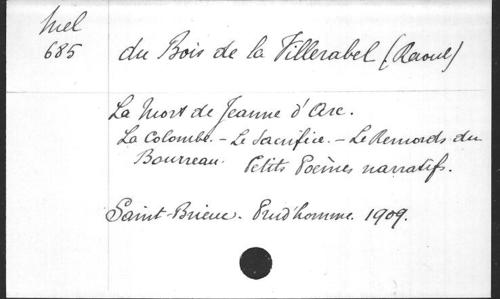 Mel
685
du Bois de la Villerabel (Raoul)
La Mort de Jeanne d'Arc.
La Colombe. - Le Sacrifice. - Le Remords du
Bourreau. Petits Poèmes narratifs.
Saint-Brieuc. Prud'homme. 1909.